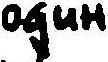 один